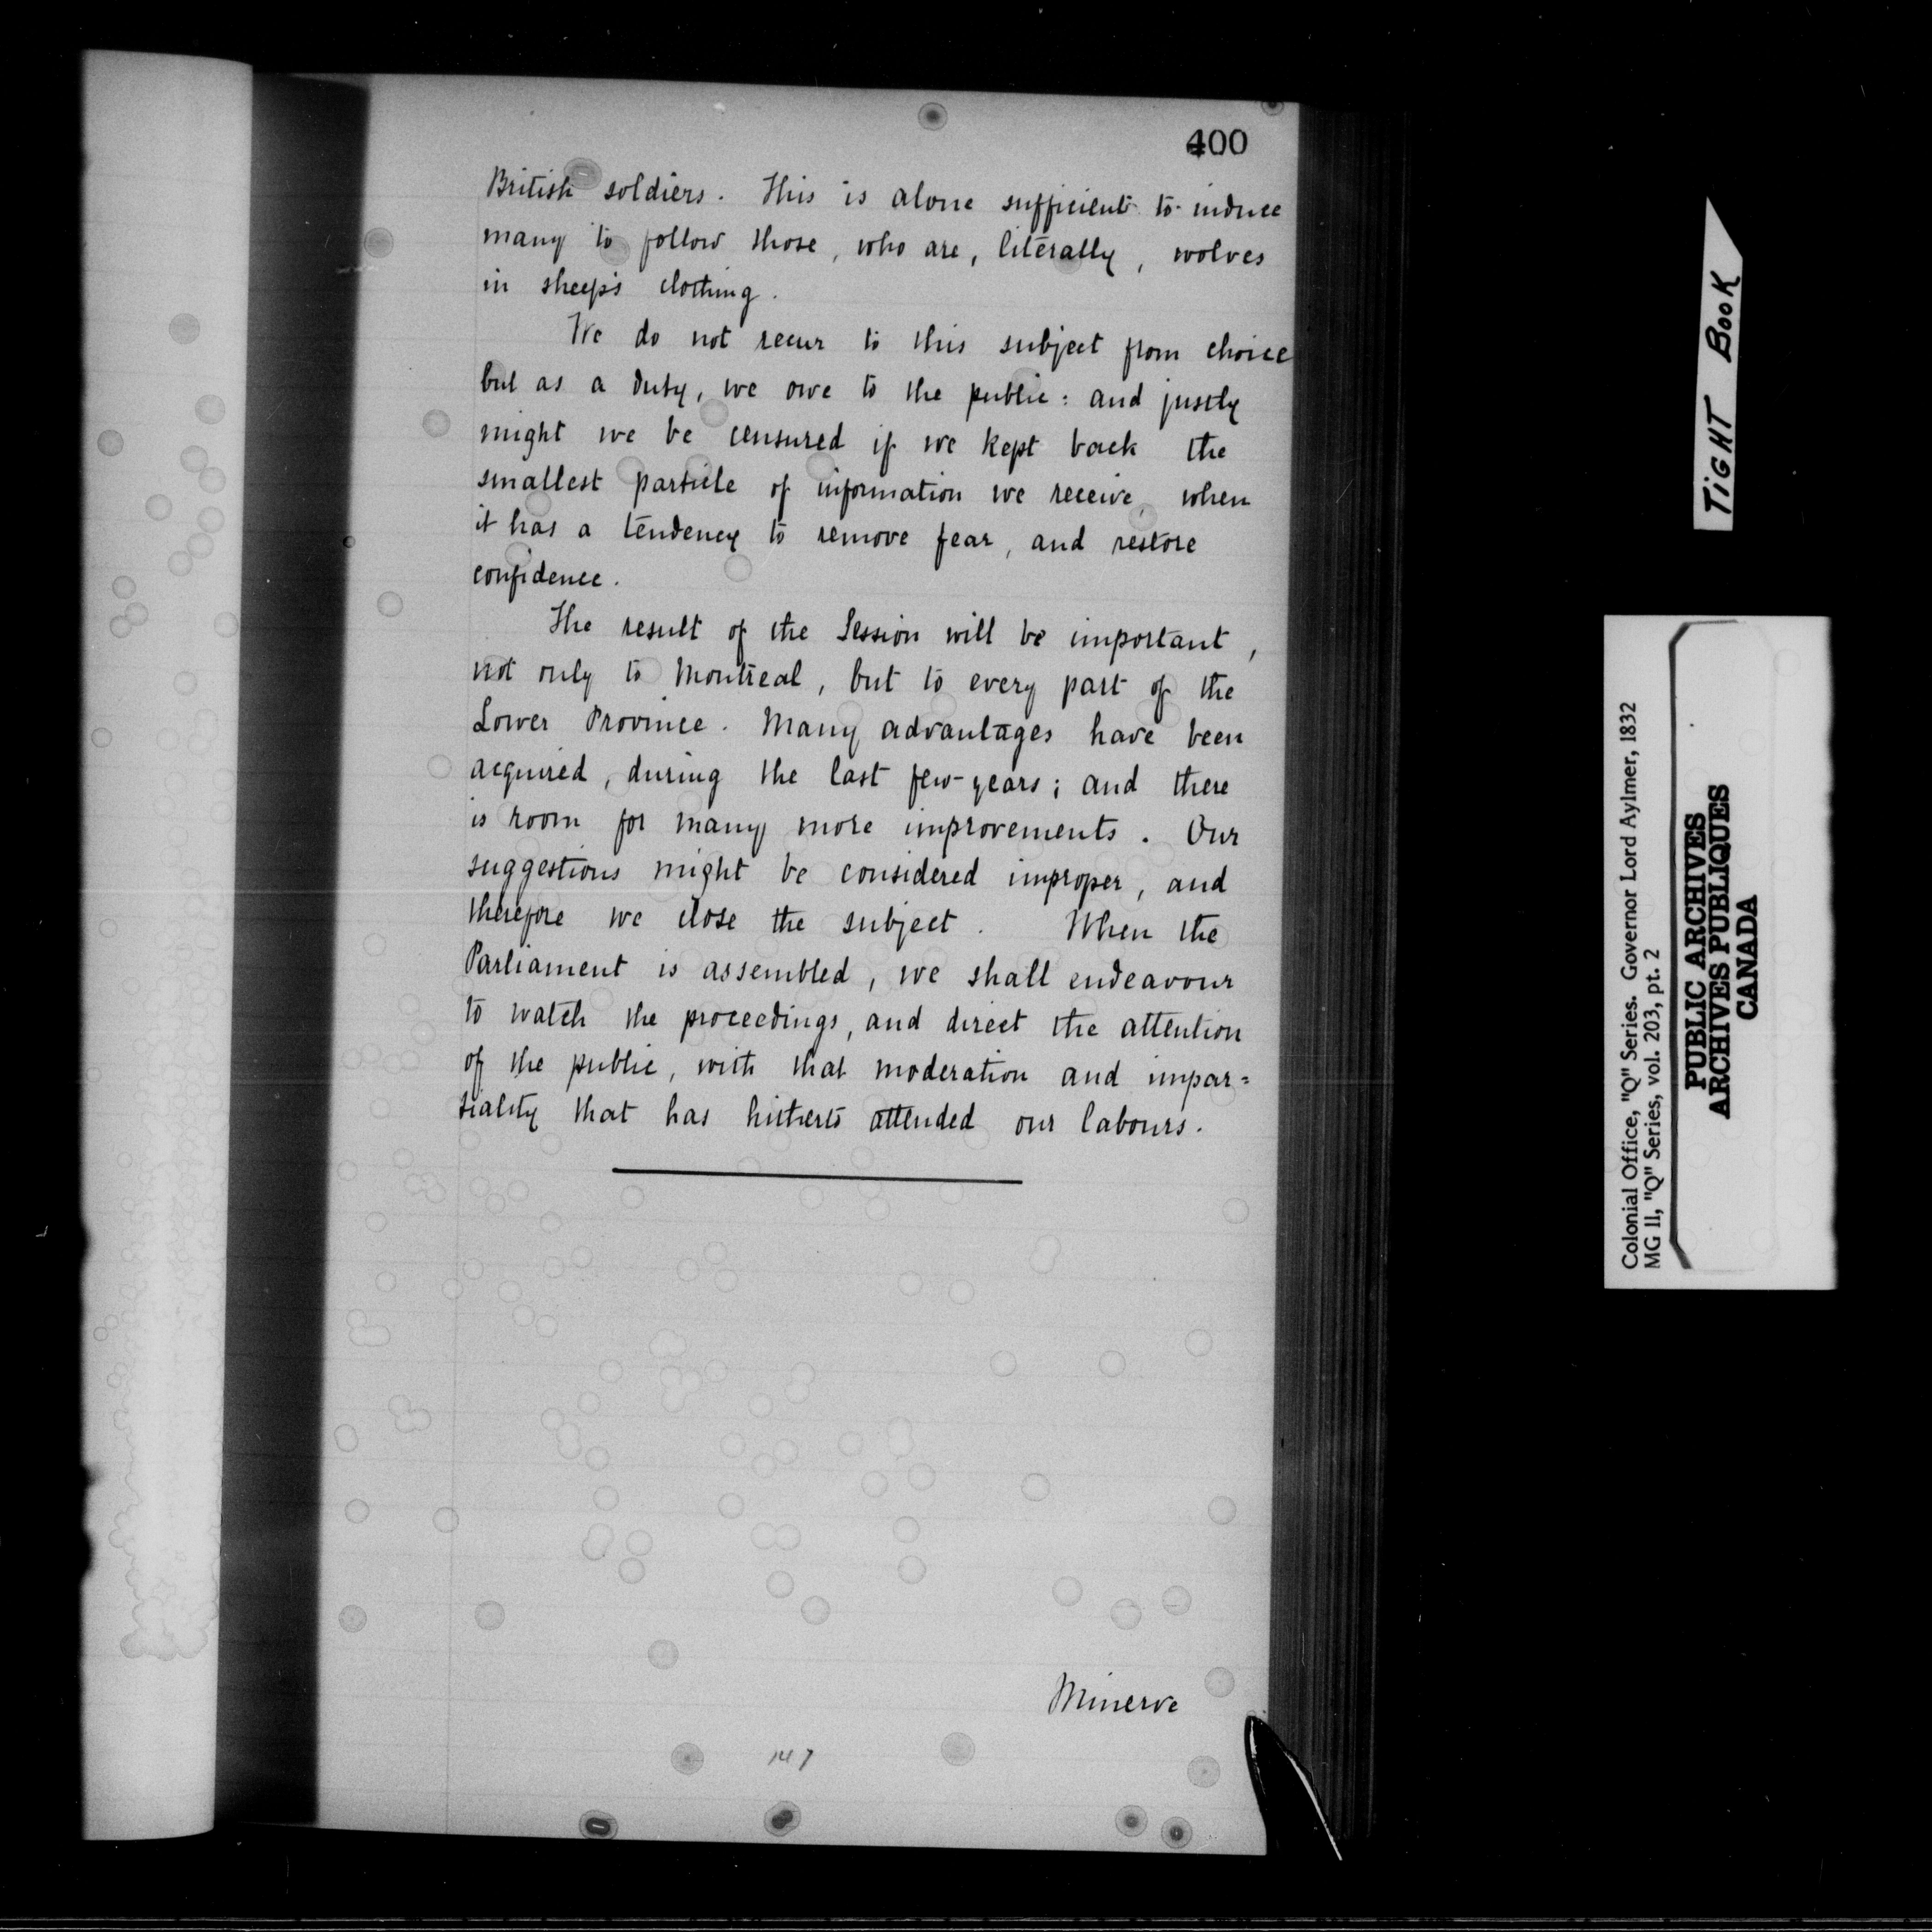 400
British soldiers. This is alone sufficient to induce
many to follow those, who are, literally, wolves
in sheep's clothing.
We do not recur to this subject from choice
but as a duty, we owe to the public: and justly
might we be censured if we kept back the
smallest particle of information we receive, when
it has a tendency to remove fear, and restore
confidence.
The result of the Session will be important,
not only to Montreal, but to every part of the
Lower Province. Many advantages have been
acquired, during the last few years; and there
is room for many more improvements. Our
suggestions might be considered improper, and
therefore we close the subject. When the
Parliament is assembled, we shall endeavour
to watch the proceedings, and direct the attention
of the public, with that moderation and impar=
tiality that has hitherto attended our labours.
Minerve
147
TIGHT BOOK
Colonial Office, "Q" Series. Governor Lord Aylmer, 1832
MG 11, "Q" Series, vol. 203, pt. 2
PUBLIC ARCHIVES
ARCHIVES PUBLIQUES
CANADA